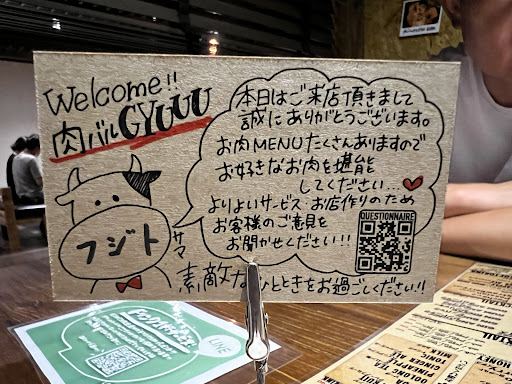 Welcome!!
肉バルGYUUU
本日はご来店頂きまして
誠にありがとうございます。
お肉MENUたくさんありますので
お好きなお肉を堪能
してください…
よりよいサービス・お店作りのため
お客様のご意見を
お聞かせください!!
QUESTIONNAIRE
フジト
サマ
素敵なひとときをお過ごしください!!
LINE
OOLONG TEA
GINGER ALE
TONIC